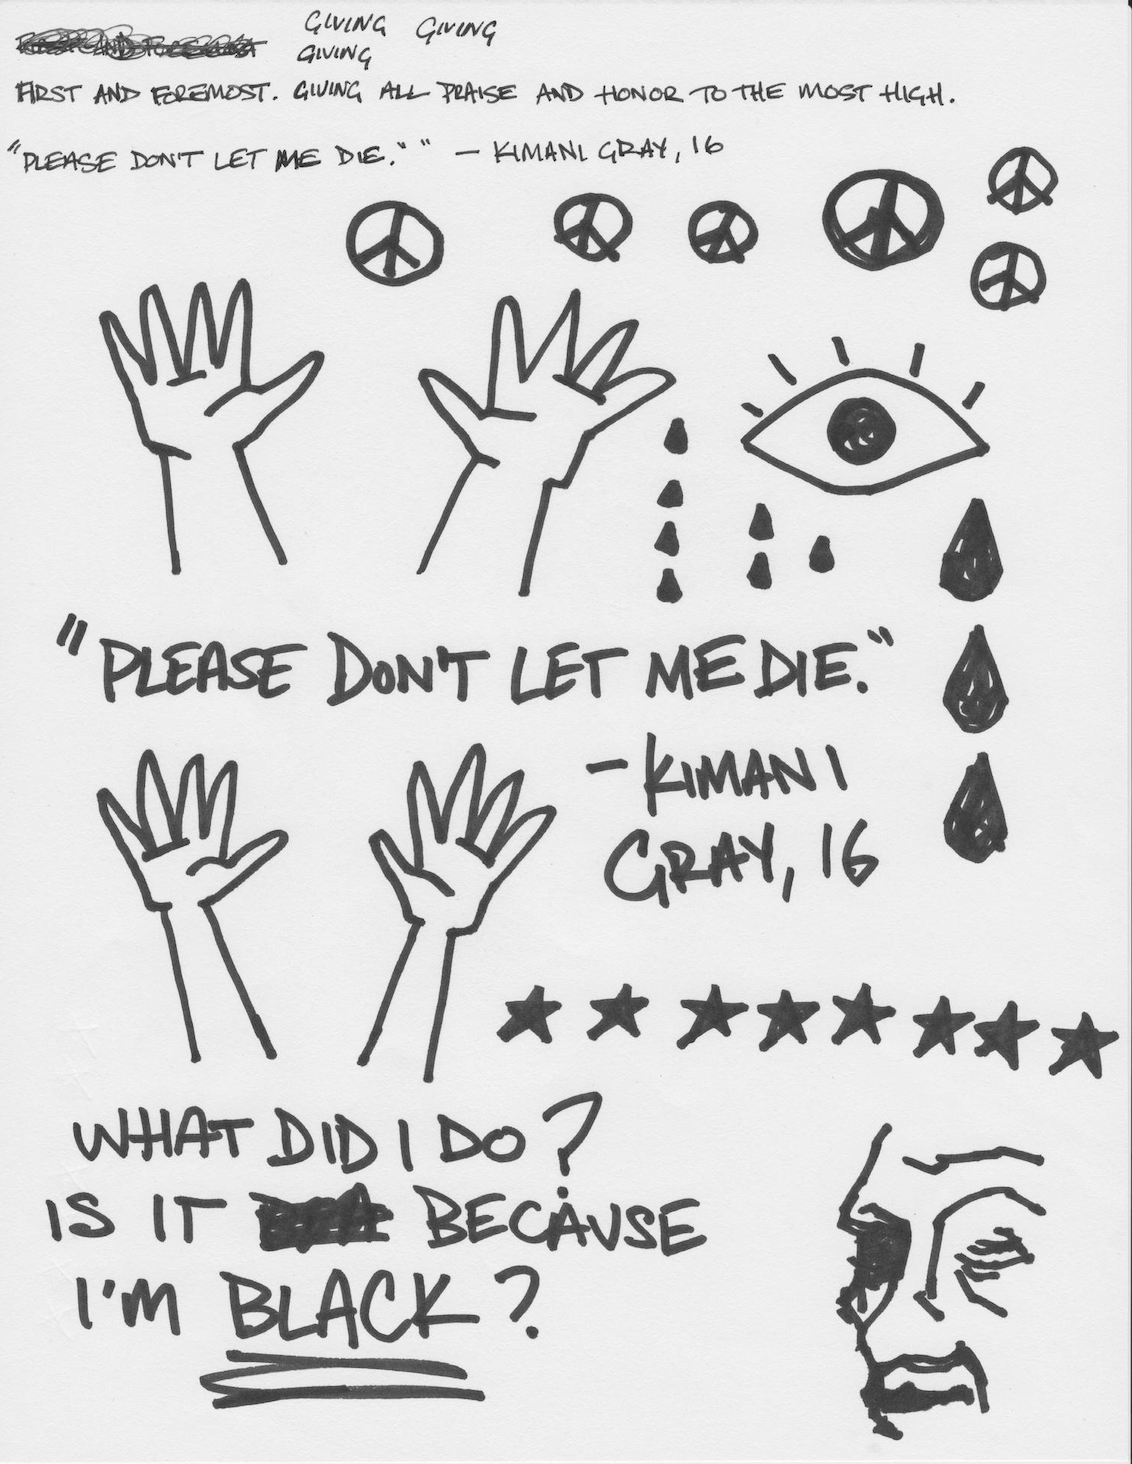 GIVING GIVING
GIVING
FIRST AND FOREMOST. GIVING ALL PRAISE AND HONOR TO THE MOST HIGH.
"PLEASE DON'T LET ME DIE." " — KIMANI GRAY, 16
"PLEASE DON'T LET ME DIE."
– KIMANI
GRAY, 16
WHAT DID I DO?
IS IT BECAUSE
I'M BLACK?